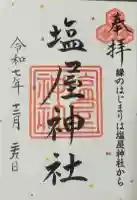 奉拝
縁のはじまりは塩屋神社から
塩屋神社
令和七年十二月二六日